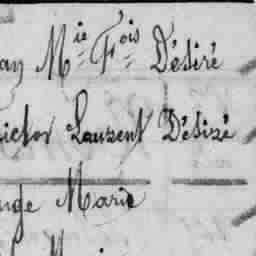 an Mie Fois Désiré
ictor Laurent Désiré
nge Marie